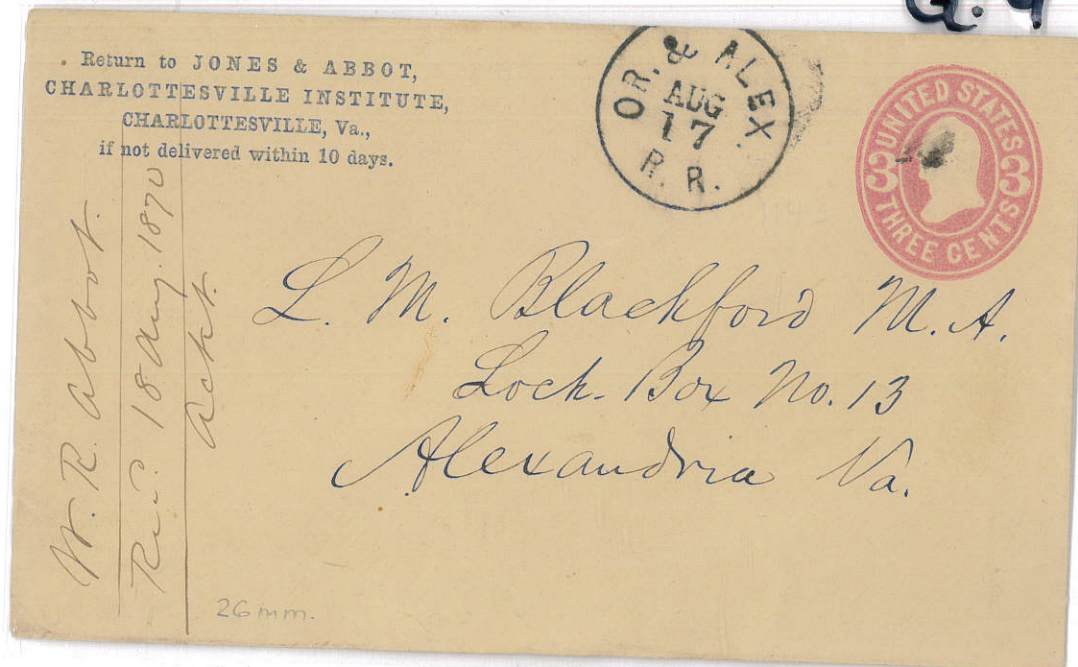 Return to JONES & ABBOT,
CHARLOTTESVILLE INSTITUTE,
CHARLOTTESVILLE, Va.,
if not delivered within 10 days.
OR. & ALEX. R. R.
AUG
17
UNITED STATES
3 3
THREE CENTS
L. M. Blackford M. A.
Lock-Box No. 13
Alexandria Va.
W. R. Abbot.
18 Aug. 1870
26 mm.